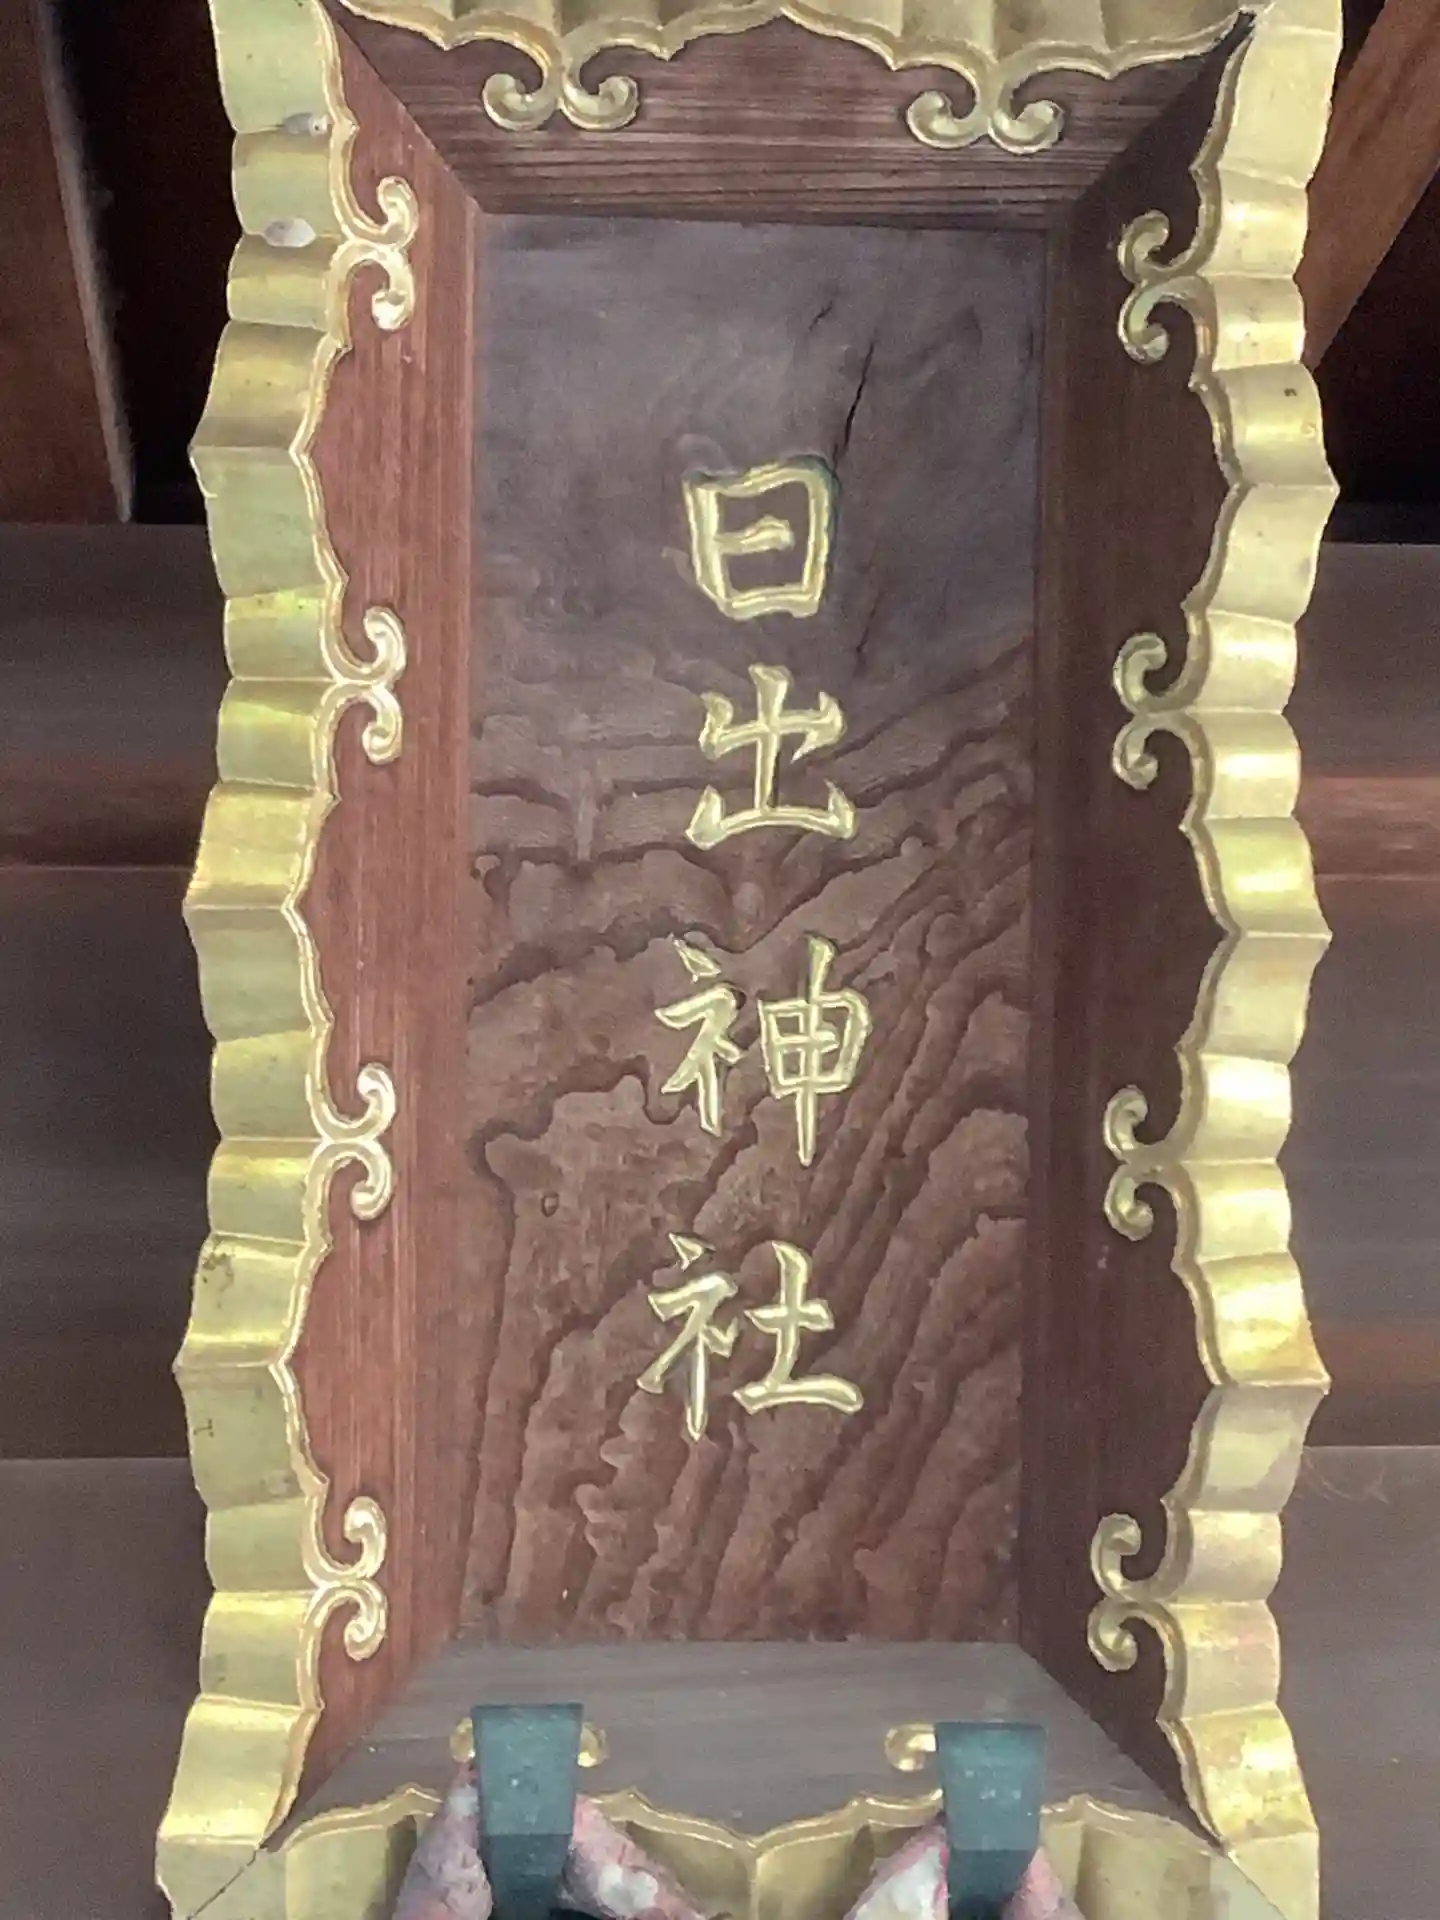 日出神社